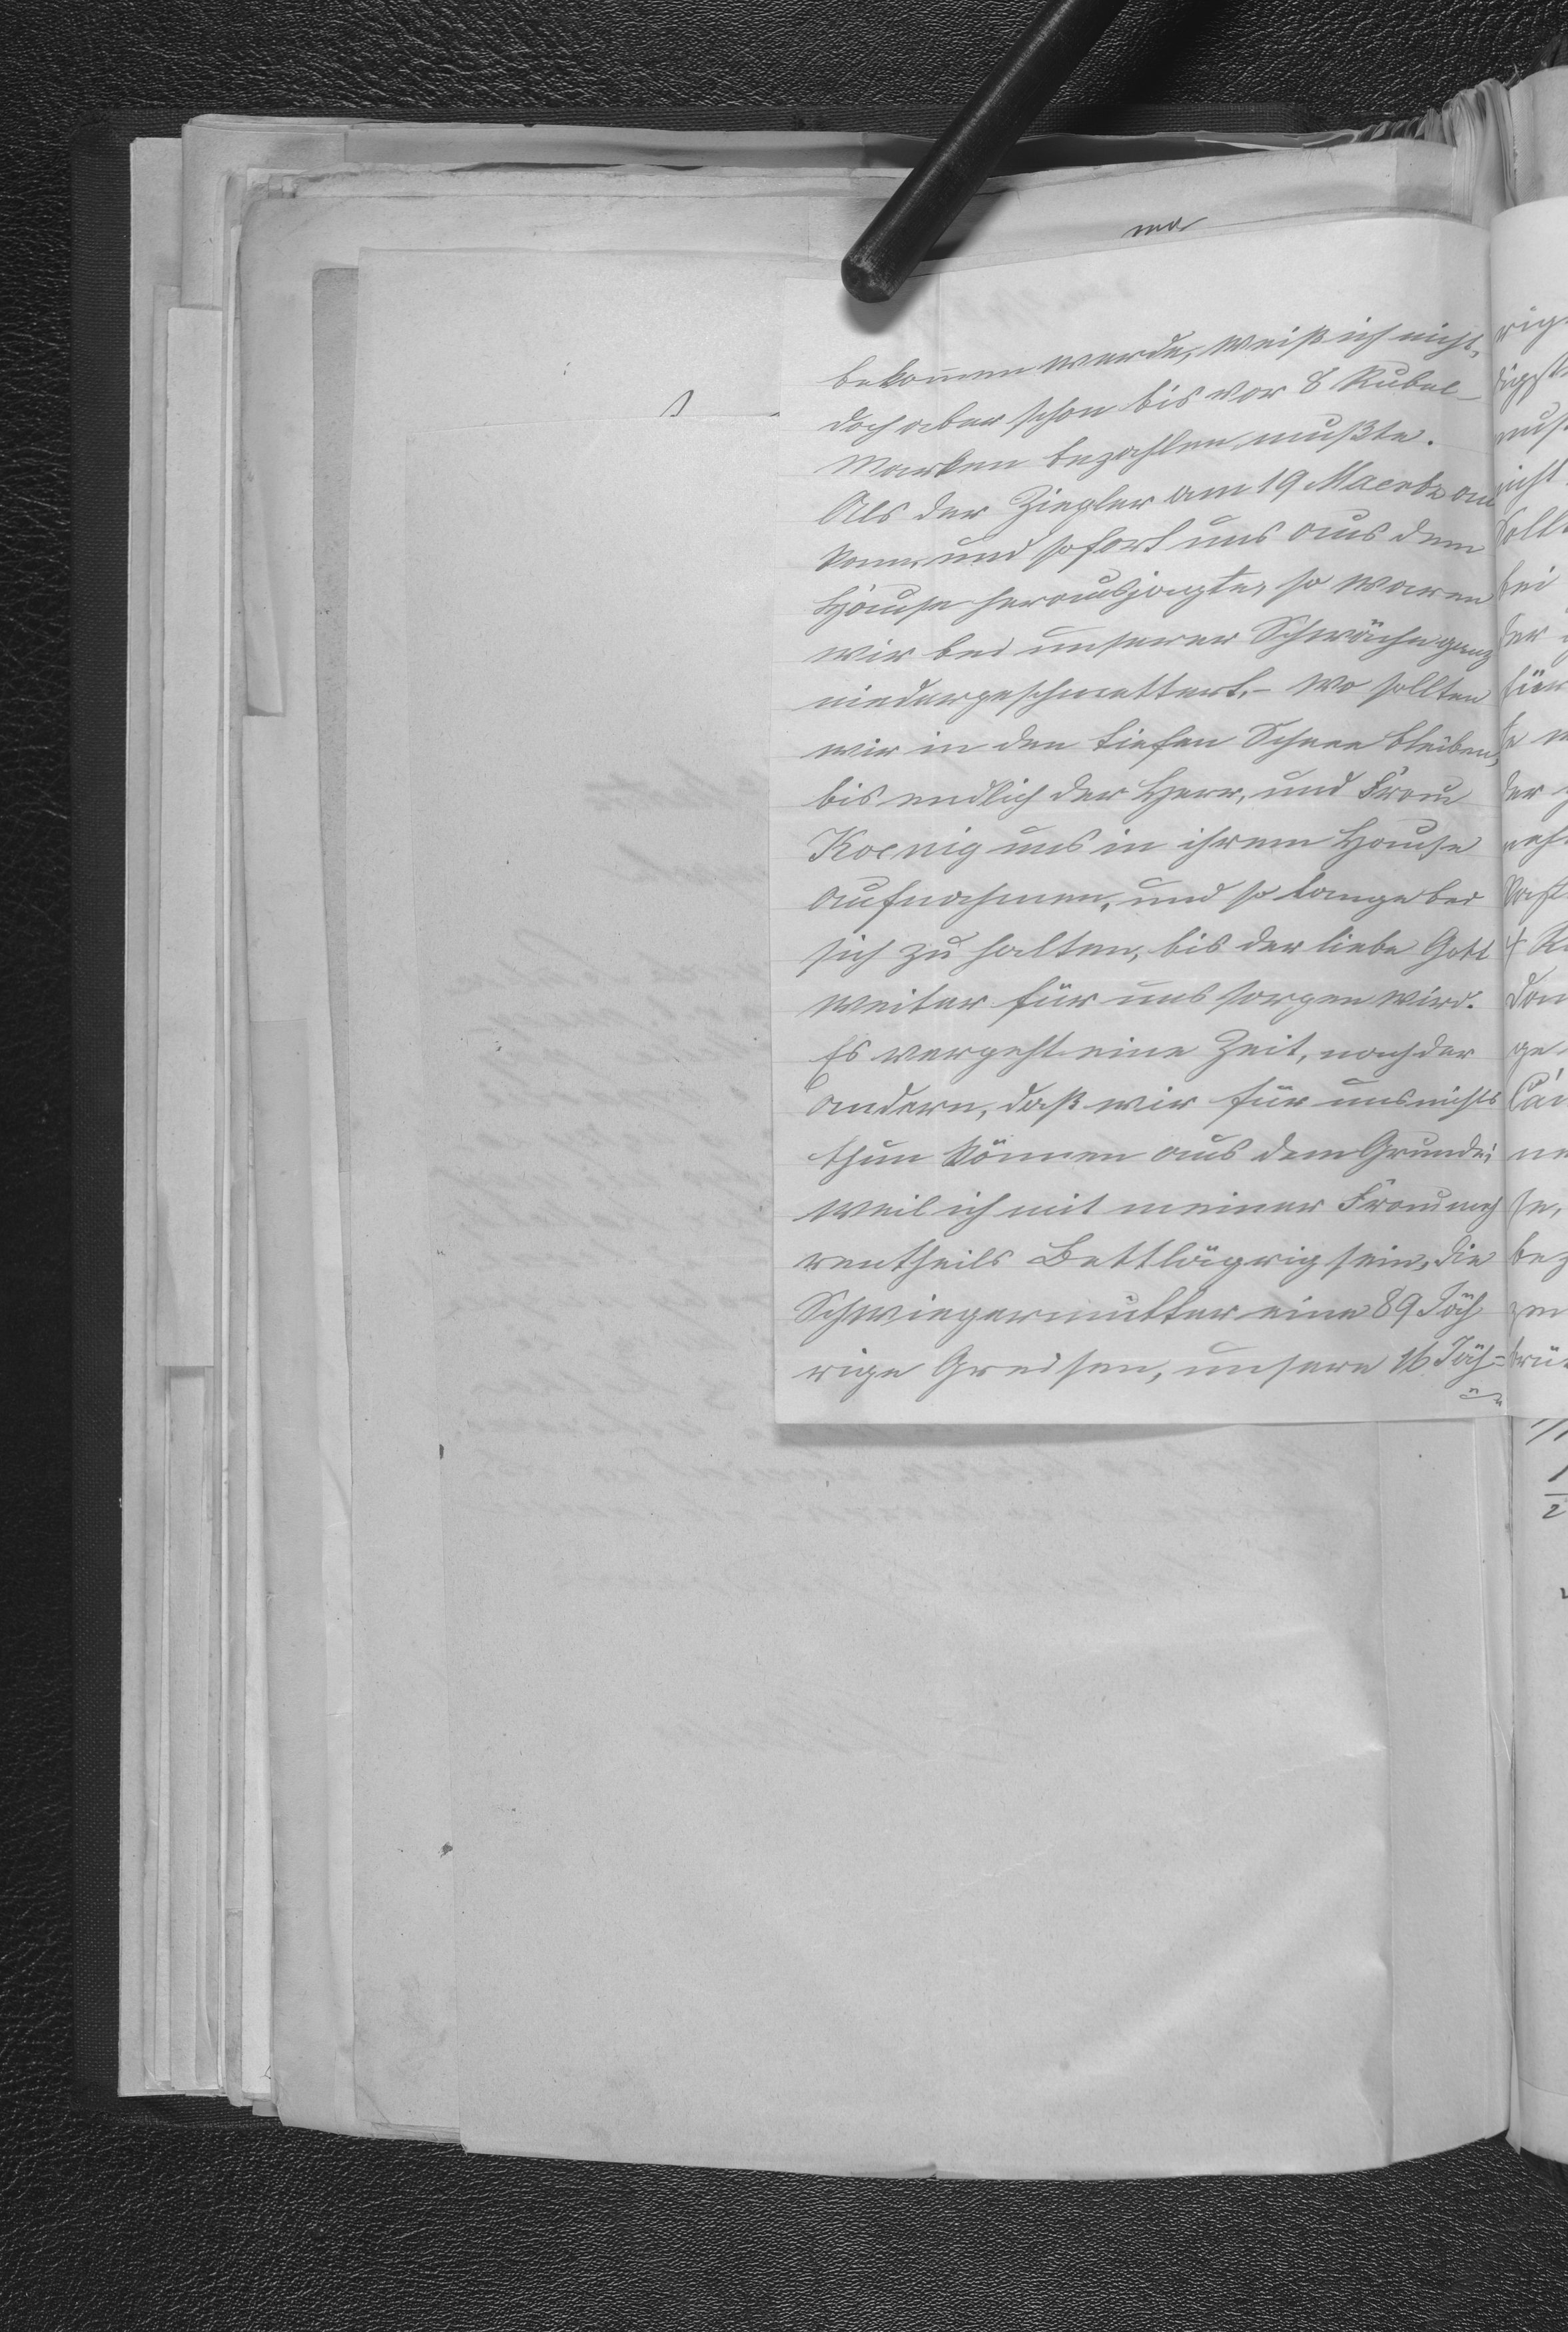 bekommen werde, weiß ich nicht,
doch aber schon bis vor 8 Rubel
Marken bezahlen mußte.
Als der Ziegler am 19 Maerbz an
kam und sofort uns aus dem
Hause herausjagte, so waren
wir bei unserer Schwäche ganz
niedergeschmettert. – Wo sollten
wir in den tiefen Schnee bleiben,
bis endlich der Herr, und Frau
Koenig uns in ihrem Hause
aufnahmen, und so lange bei
sich zu halten, bis der liebe Gott
weiter für uns sorgen wird.
Es vergeht eine Zeit, nach der
andern, daß wir für uns nichts
thun können aus dem Grunde,
weil ich mit meiner Frau meh
rentheils Bettlägrig sein, die
Schwiegermutter eine 89 Jäh
rige Greisen, unsere 16 Jäh=